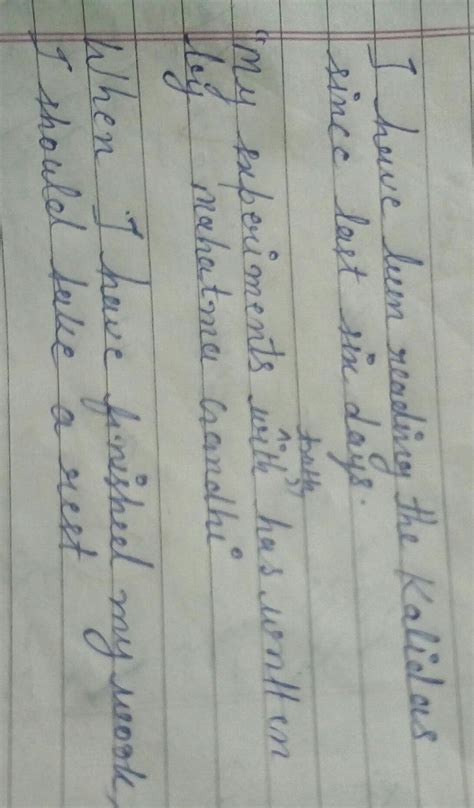 I have been reading the Kalidas
since last six days.
"My experiments with truth" has written
by mahatma Gandhi
When I have finished my work,
I should take a rest